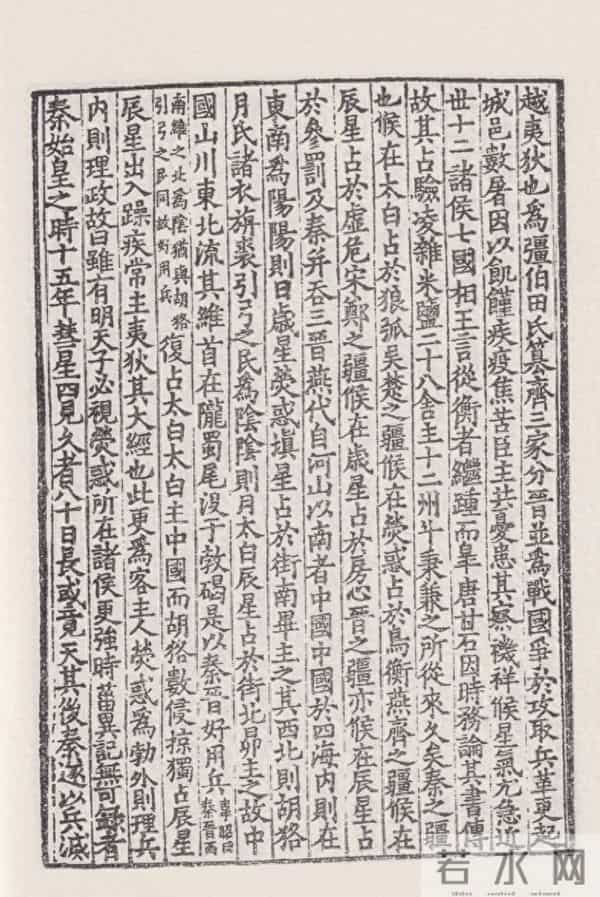 越夷狄也爲彊伯田氏簒齊三家分晉並爲戰國爭於攻取兵革更起
城邑數屠因以飢饉疾疫焦苦臣主共憂患其察禨祥候星氣尤急近
世十二諸侯七國相王言從衡者繼踵而皐唐甘石因時務論其書傳
故其占驗凌雜米鹽二十八舍主十二州斗秉兼之所從來久矣秦之疆
也候在太白占於狼弧矣楚之疆候在熒惑占於鳥衡燕齊之疆候在
辰星占於虛危宋鄭之疆候在歲星占於房心晉之疆亦候在辰星占
於參罰及秦并吞三晉燕代自河山以南者中國中國於四海內則在
東南爲陽陽則日歲星熒惑塡星占於街南畢主之其西北則胡貉
月氏諸衣旃裘引弓之民爲陰陰則月太白辰星占於街北昴主之故中
國山川東北流其維首在隴蜀尾沒于勃碣是以秦晉好用兵韋昭曰秦晉西
南維之北爲陰猶與胡貉引弓之民同故好用兵復占太白太白主中國而胡貉數侵掠獨占辰星
辰星出入躁疾常主夷狄其大經也此更爲客主人熒惑爲勃外則理兵
內則理政故曰雖有明天子必視熒惑所在諸侯更強時菑異記無可錄者
秦始皇之時十五年彗星四見久者八十日長或竟天其後秦遂以兵滅
若水网